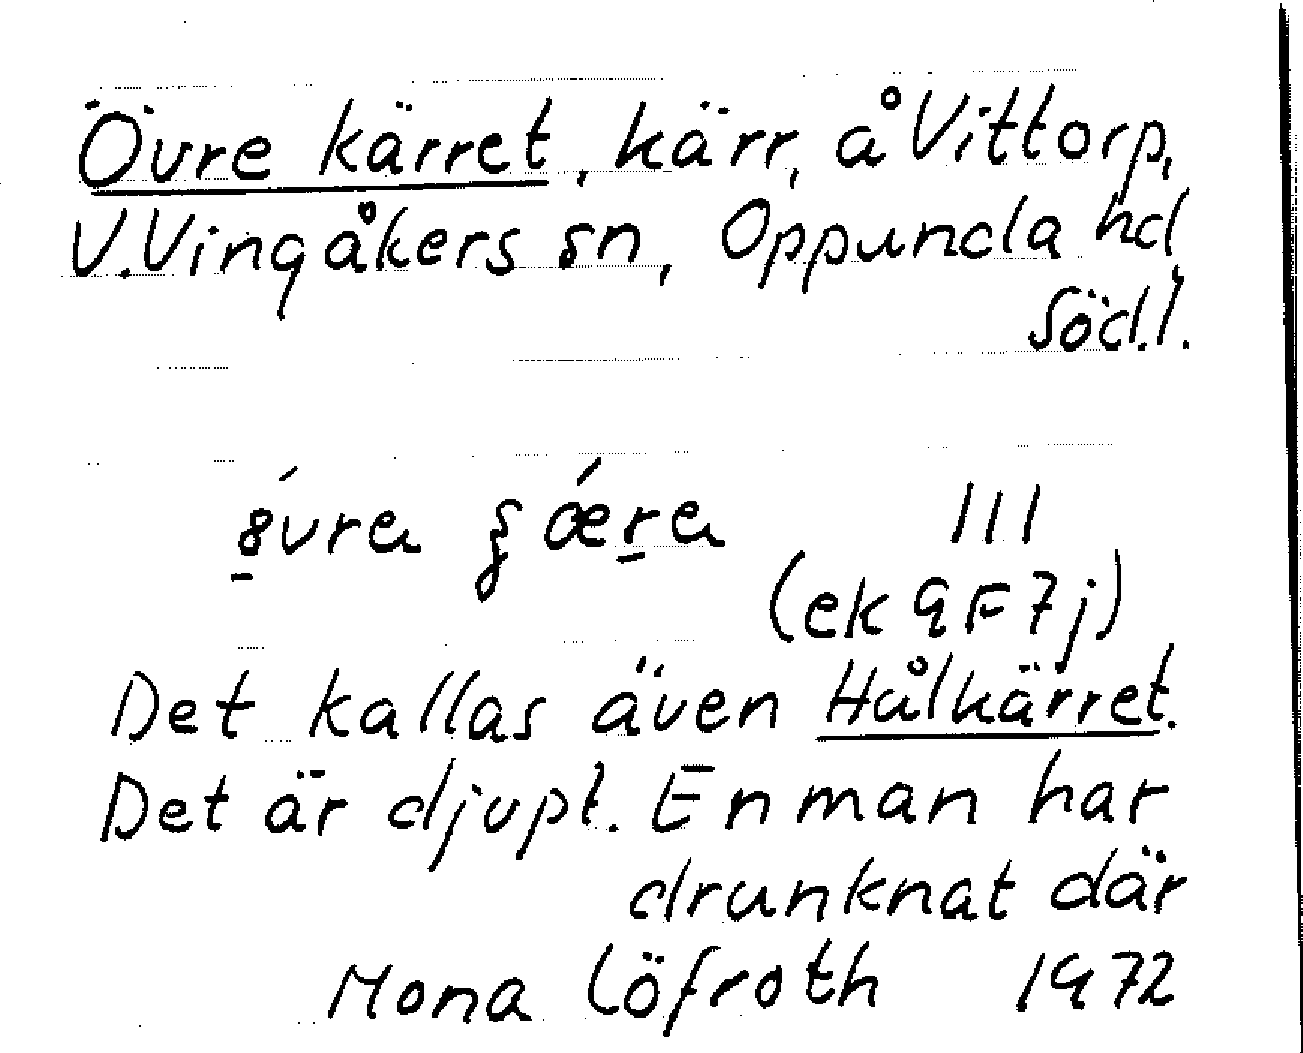 Övre kärret, kärr, å Vittorp,
V. Vingåkers sn, Oppunda hd,
Söd.l.
III
(ek 9F7j)
Det kallas även Hålkärret.
Det är djupt. En man har
drunknat där
Mona Löfroth 1972